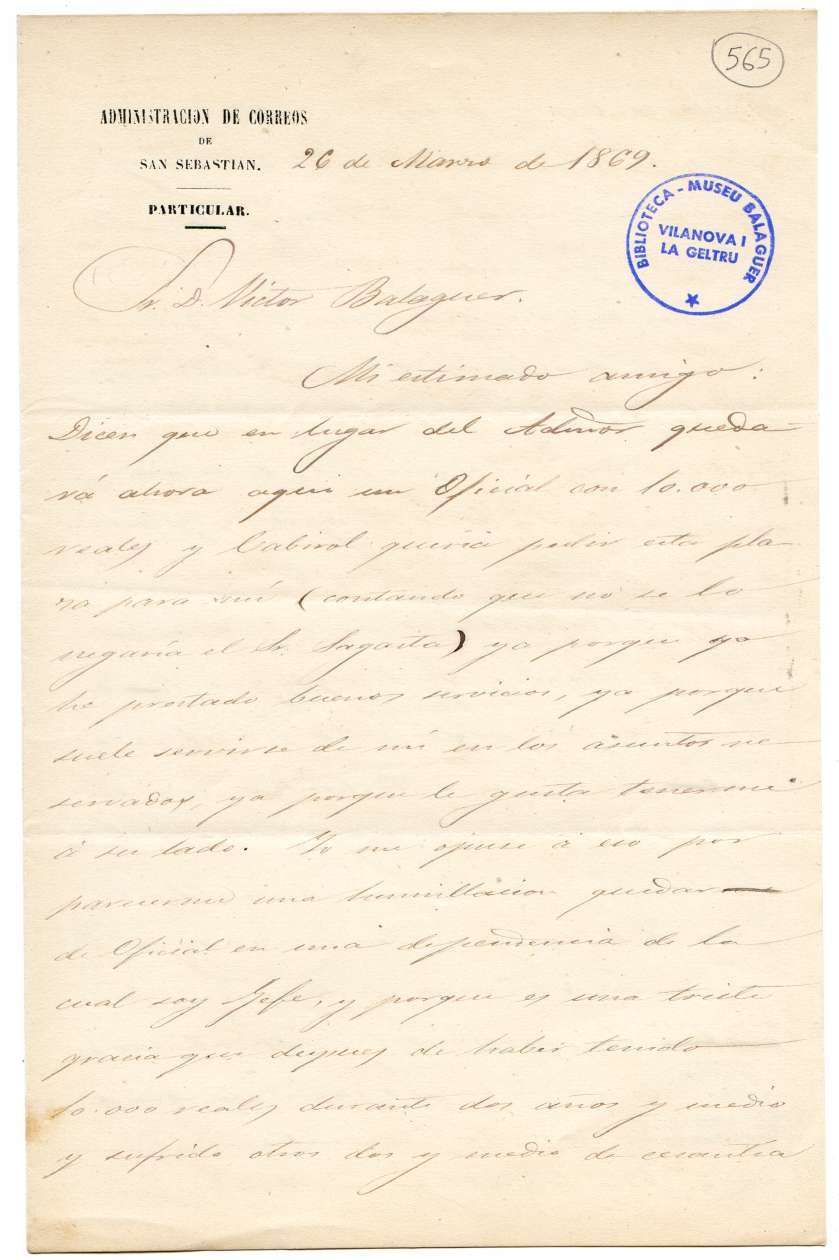 565
ADMINISTRACION DE CORREOS
DE
SAN SEBASTIAN.
26 de Marzo de 1869.
PARTICULAR.
BIBLIOTECA - MUSEU BALAGUER
VILANOVA I
LA GELTRU
Sr. D. Victor Balaguer.
Mi estimado amigo:
Dicen que en lugar del Admor. queda-
rá ahora aqui un Oficial con 10.000
reales y Cabirol queria pedir esta pla-
za para mí (contando que no se la
negaría el Sr. Sagasta) ya porque yo
he prestado buenos servicios, ya porque
suele servirse de mí en los asuntos re-
servados, ya porque le gusta tenerme
á su lado. Yo me opuse á eso por
parecerme una humillacion quedar
de Oficial en una dependencia de la
cual soy Jefe, y porque es una triste
gracia que despues de haber tenido
10.000 reales durante dos años y medio
y sufrido otros dos y medio de cesantía